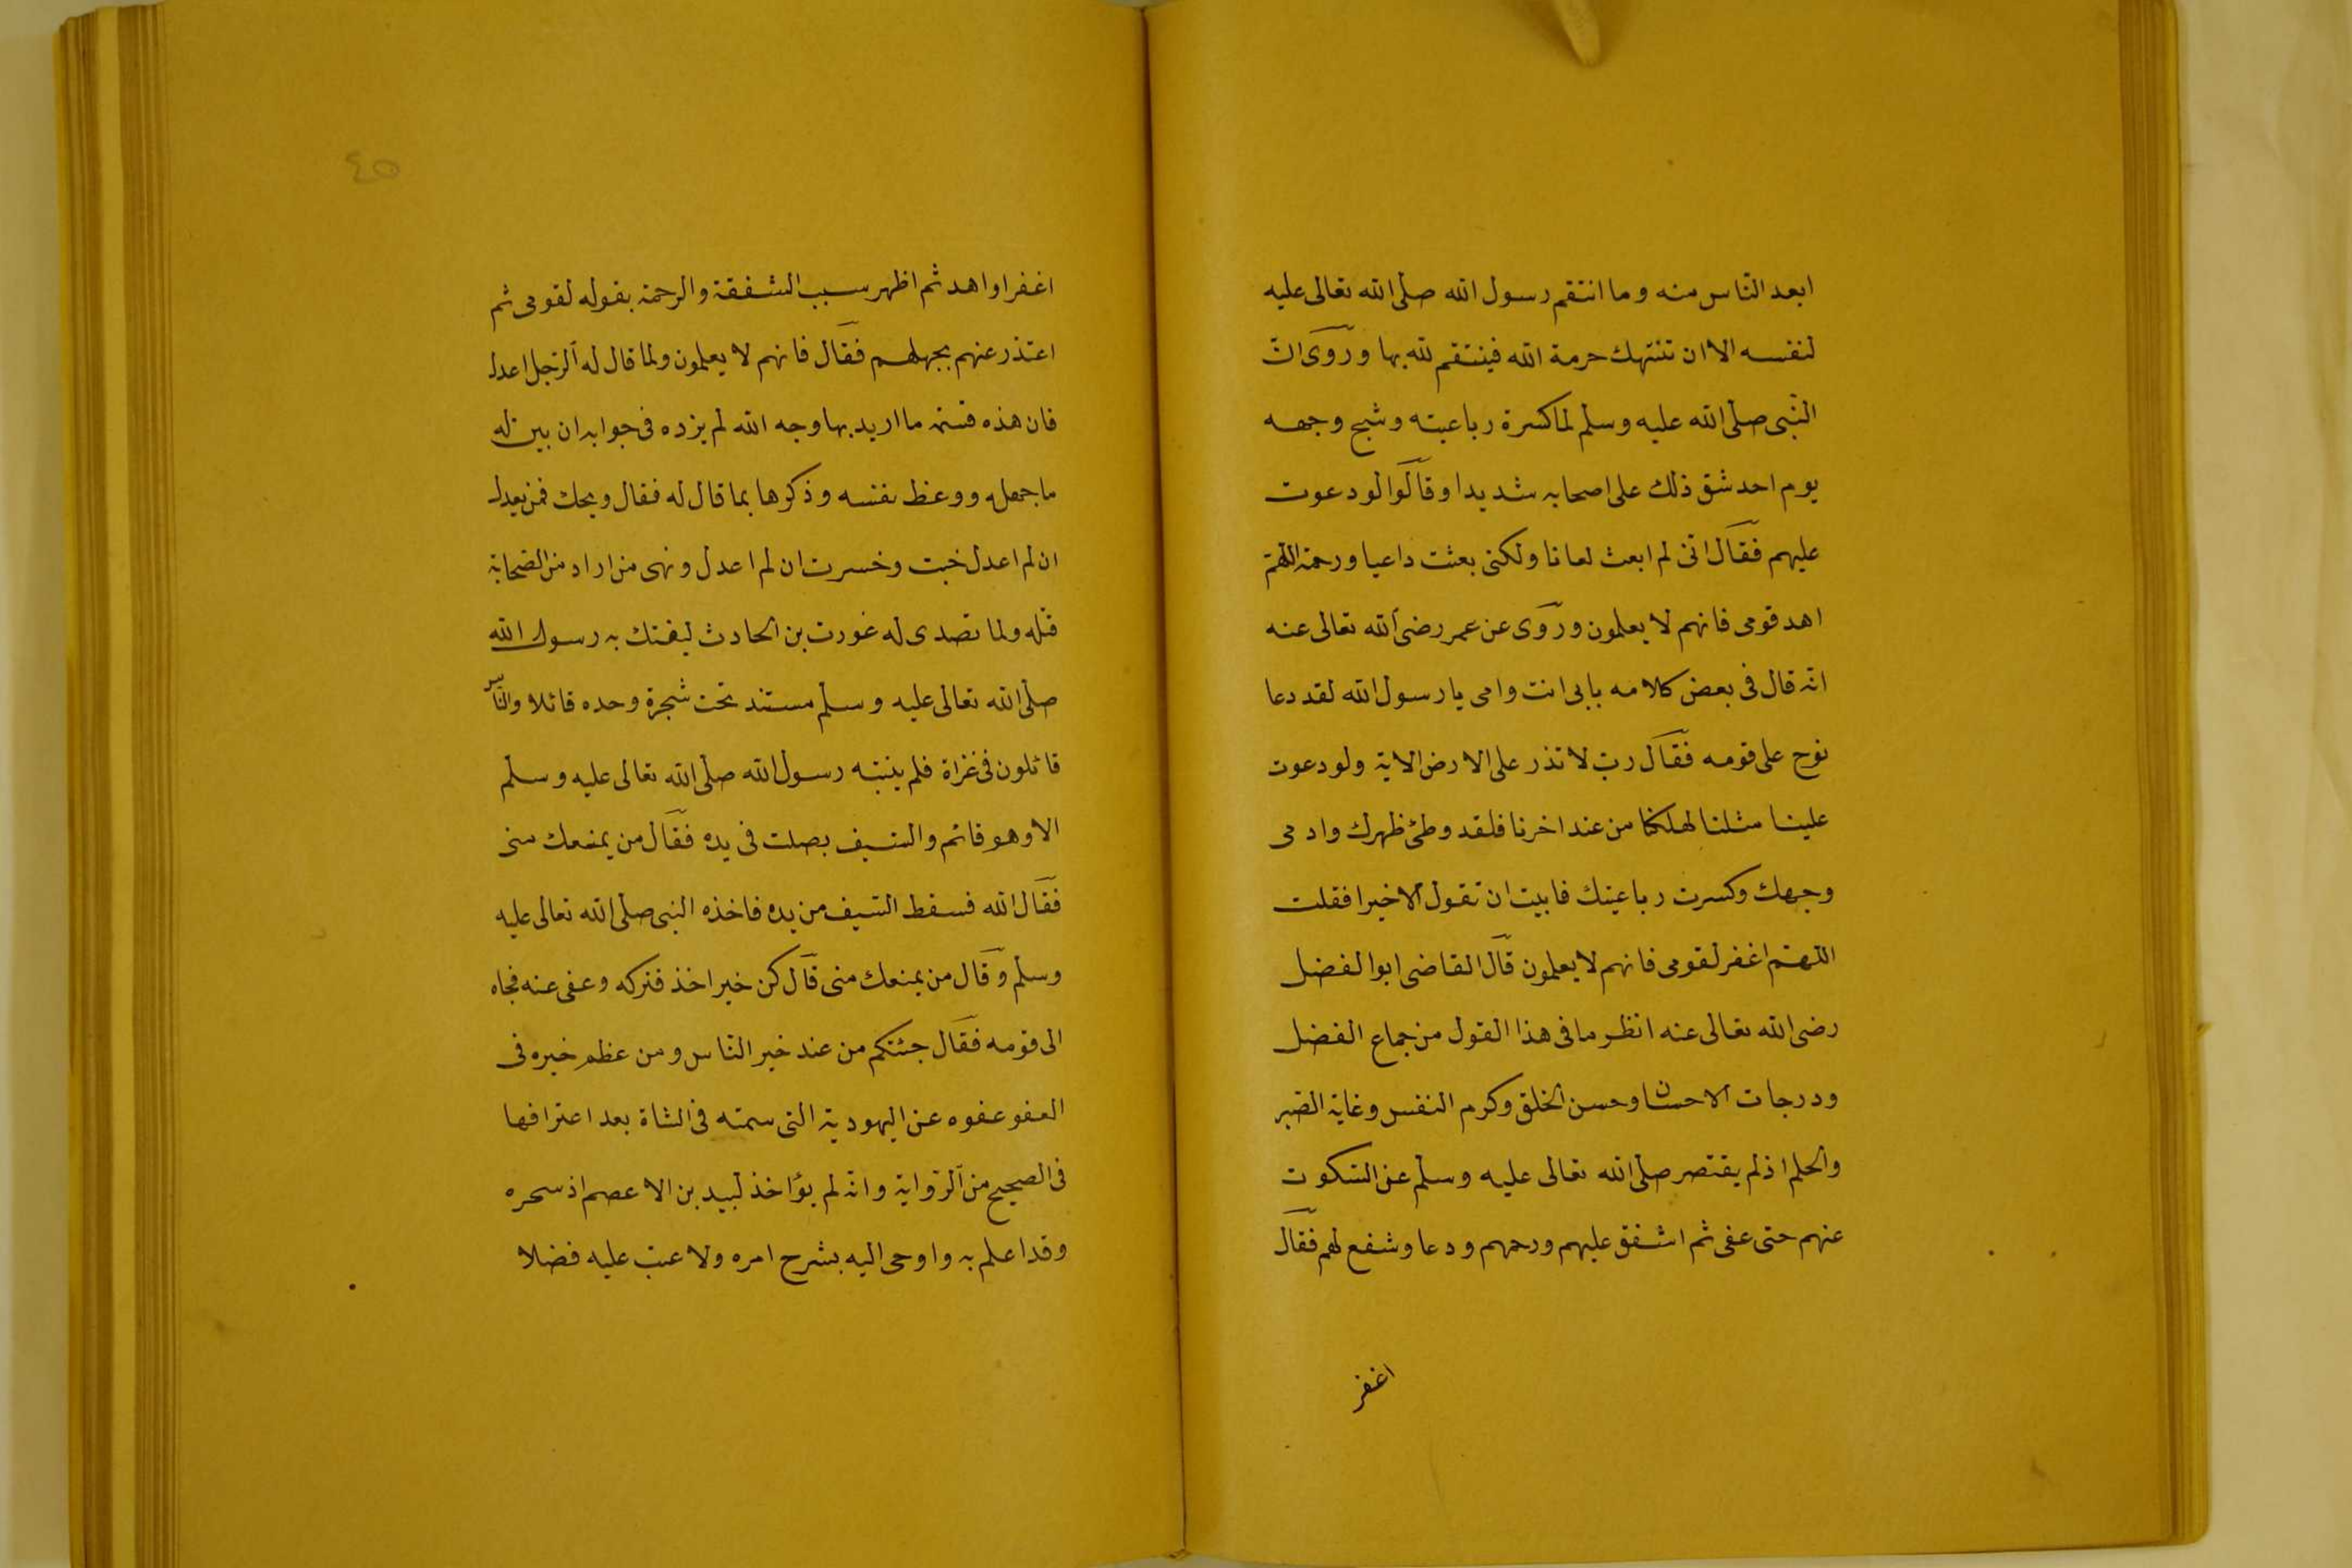 ابعد الناس منه وما انتقم رسول الله صلى الله تعالى عليه
لنفسه الا ان تنتهك حرمة الله فينتقم لله بها وروى ان
النبى صلى الله عليه وسلم لما كسرة رباعيته وشج وجهه
يوم احد شق ذلك على اصحابه شديدا وقالوا لو دعوت
عليهم فقال انى لم ابعث لعانا ولكنى بعثت داعيا ورحمة اللهم
اهد قومى فانهم لا يعلمون وروى عن عمر رضى الله تعالى عنه
انه قال فى بعض كلامه بابى انت وامى يا رسول الله لقد دعا
نوح على قومه فقال رب لا تذر على الارض الاية ولو دعوت
علينا مثلنا لهلكنا من عند اخرنا فلقد وطئ ظهرك وادمى
وجهك وكسرت رباعيتك فابيت ان تقول الا خيرا فقلت
اللهم اغفر لقومى فانهم لا يعلمون قال القاضى ابو الفضل
رضى الله تعالى عنه انظر ما فى هذا القول من جماع الفضل
ودرجات الاحسان وحسن الخلق وكرم النفس وغاية الصبر
والحلم اذ لم يقتصر صلى الله تعالى عليه وسلم عن السكوت
عنهم حتى عفى ثم اشفق عليهم ورحمهم ودعا وشفع لهم فقال
اغفر
٤٥
اغفر او اهد ثم اظهر سبب الشفقة والرحمة بقوله لقومى ثم
اعتذر عنهم بجهلهم فقال فانهم لا يعلمون ولما قال له الرجل اعدل
فان هذه قسمة ما اريد بها وجه الله لم يزده فى جوابه ان بين له
ما جهله ووعظ نفسه وذكرها بما قال له فقال ويحك فمن يعدل
ان لم اعدل خبت وخسرت ان لم اعدل ونهى من اراد من الصحابة
قتله ولما تصدى له غورت بن الحادث ليفتك به رسول الله
صلى الله تعالى عليه وسلم مستند تحت شجرة وحده قائلا والناس
قائلون فى غزاة فلم ينتبه رسول الله صلى الله تعالى عليه وسلم
الا وهو قائم والسيف بصلت فى يده فقال من يمنعك منى
فقال الله فسقط السيف من يده فاخذه النبى صلى الله تعالى عليه
وسلم وقال من يمنعك منى قال كن خير اخذ فتركه وعفى عنه فجاه
الى قومه فقال جئتكم من عند خير الناس ومن عظم خبره فى
العفو عفوه عن اليهودية التى سمته فى الشاة بعد اعترافها
فى الصحيح من الرواية وانه لم يؤاخذ لبيد بن الاعصم اذ سحره
وقد اعلم به واوحى اليه بشرح امره ولا عتب عليه فضلا